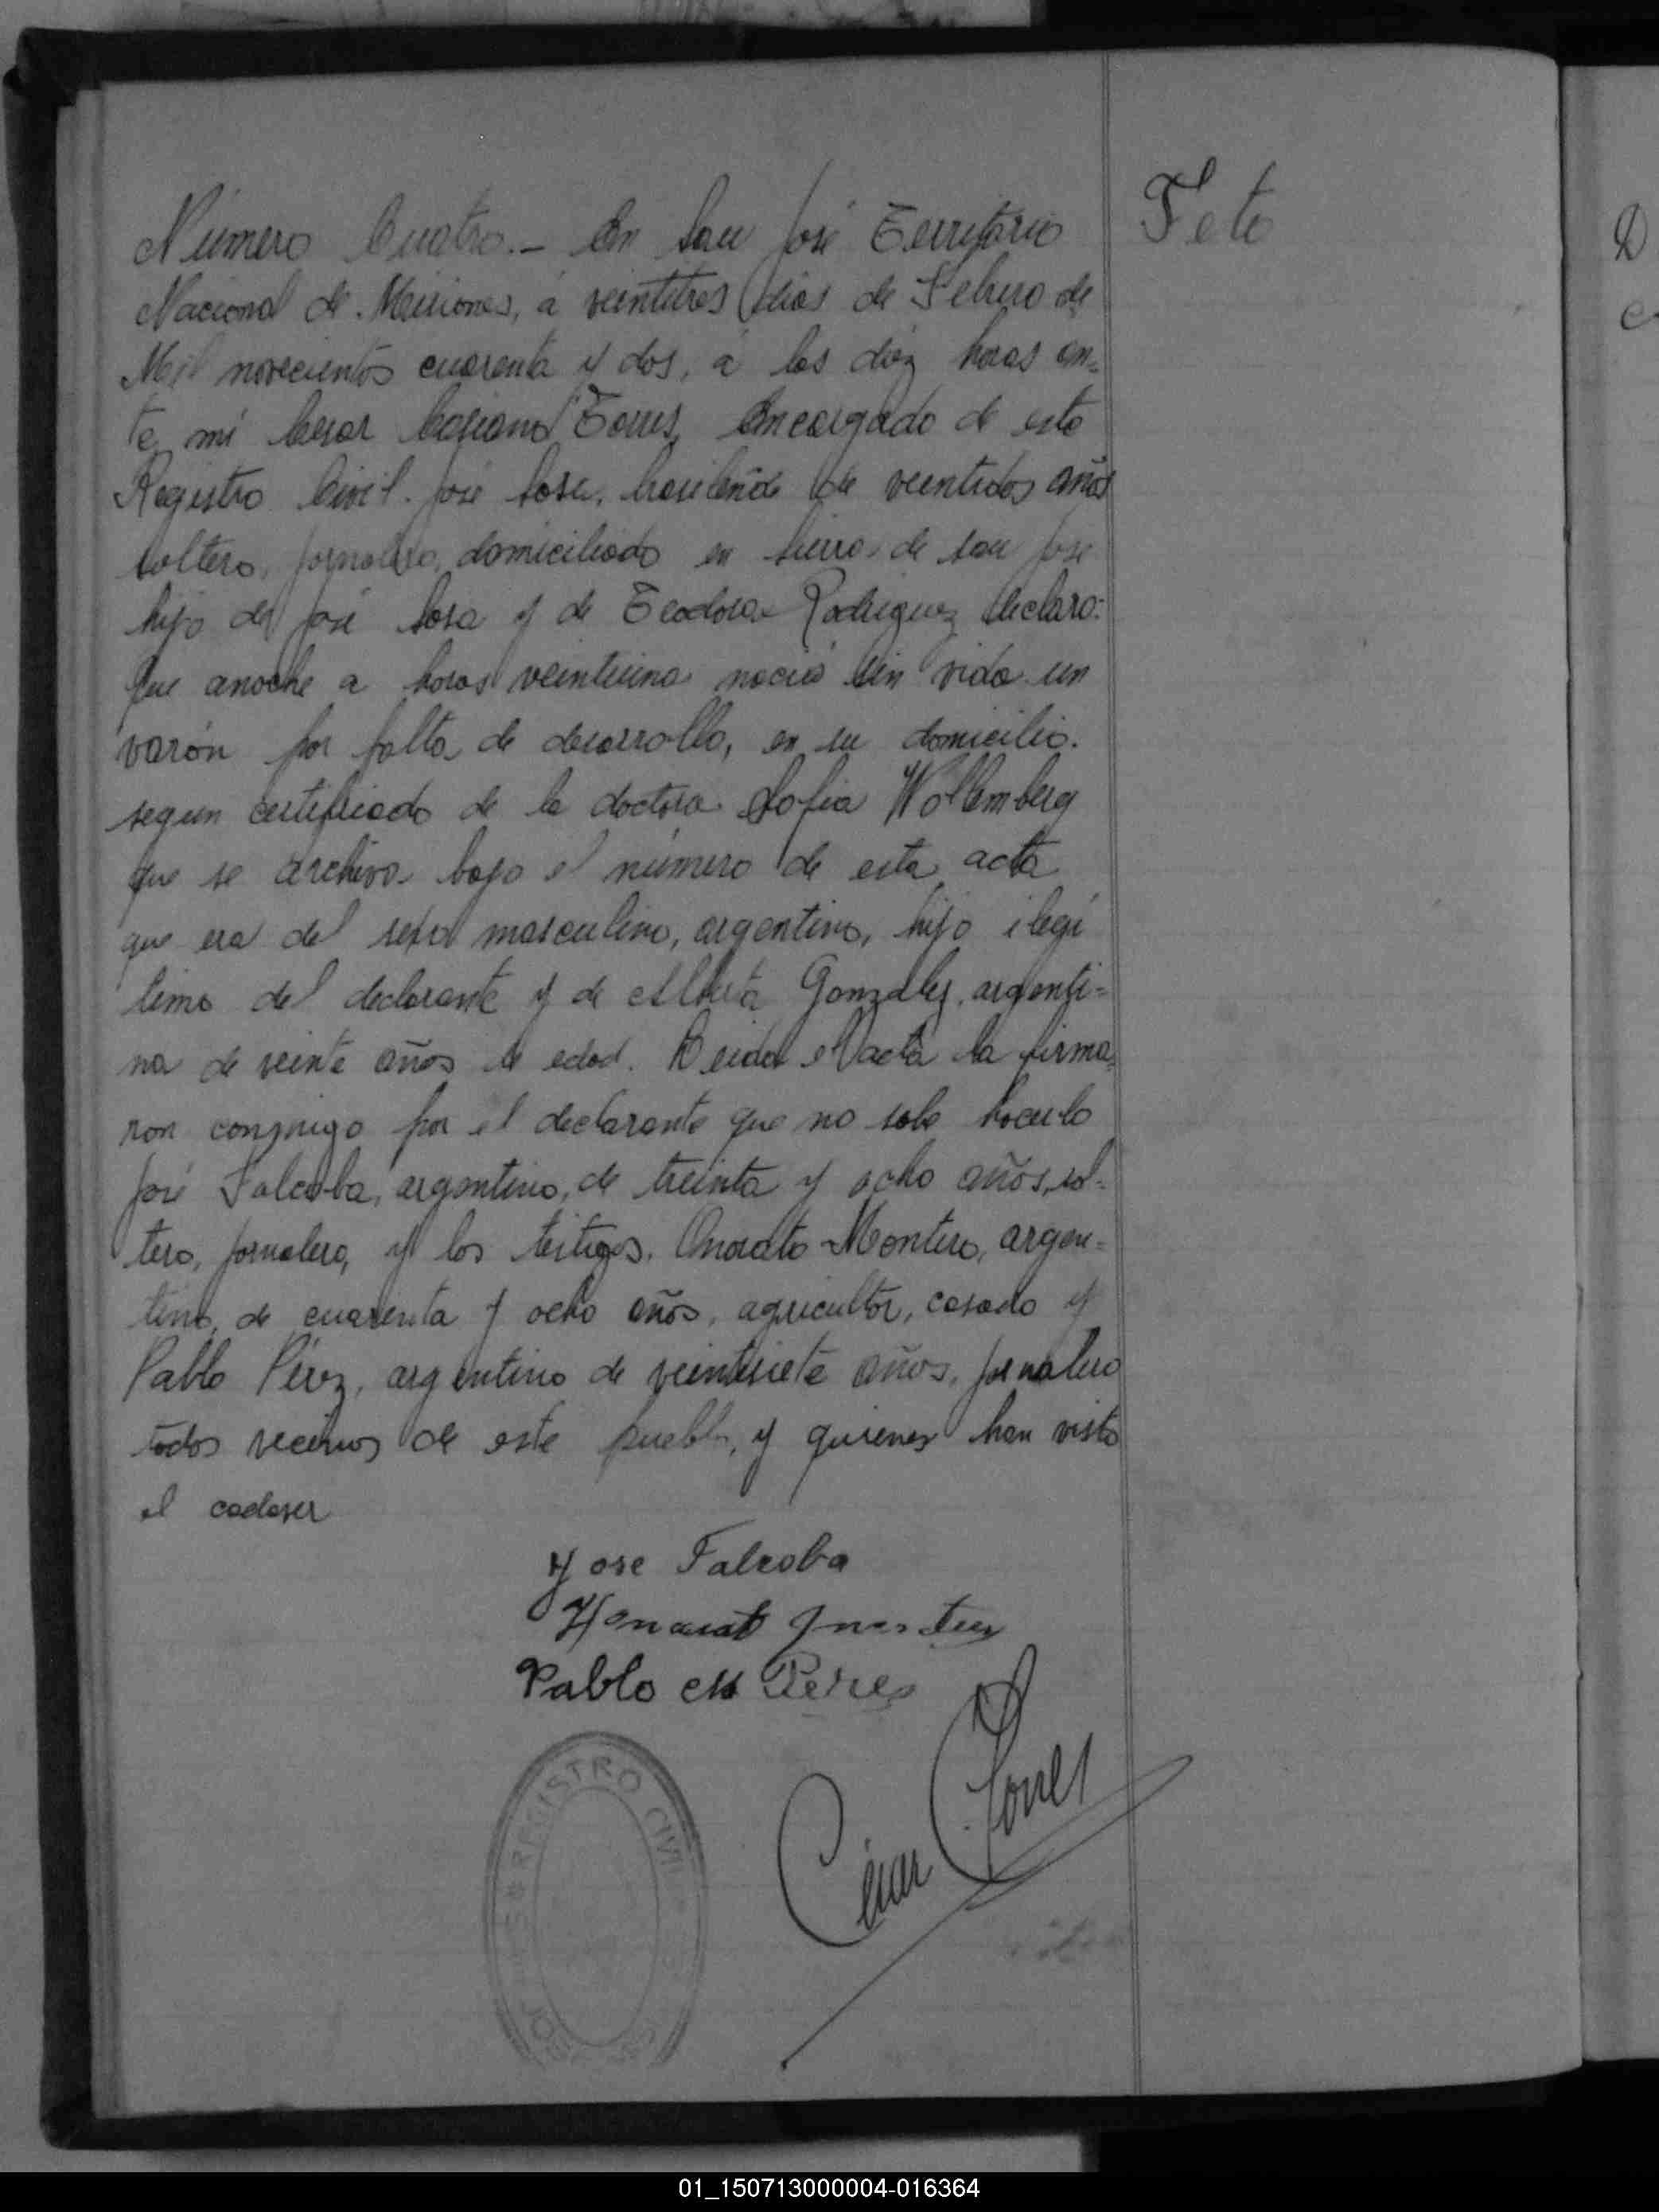 Número Cuatro.- En San José Territorio
Feto
Nacional de Misiones, á veintitres dias de Febrero de
Mil novecientos cuarenta y dos, á las diez horas an=
te mí Cesar Casiano Torres, Encargado de este
Registro Civil. José Sosa, brasileño de veintidos años
soltero, jornalero, domiciliado en tierras de San José
hijo de José Sosa y de Teodora Rodriguez declaro:
Que anoche a horas veintiuna nació sin vida un
varón por falta de desarrollo, en su domicilio.
segun certificado de la doctora Sofia Wollemberg
que se archiva bajo el número de esta acta
que era del sexo masculino, argentino, hijo ilegi
timo del declarante y de Gonzalez, argenti=
na de veinte años de edad. Leida el acta la firma=
ron conmigo por el declarante que no sabe hacerlo
José Falcoba, argentino, de treinta y ocho años, sol=
tero, jornalero, y los testigos. Onorato Montero, argen=
tino, de cuarenta y ocho años, agricultor, casado y
Pablo Pérez, argentino de veintisiete años, jornalero
todos vecinos de este pueblo, y quienes han visto
el cadaver
Jose Falcoba
Pablo Peres
Cesar C Torres
REGISTRO CIVIL
01_150713000004-016364